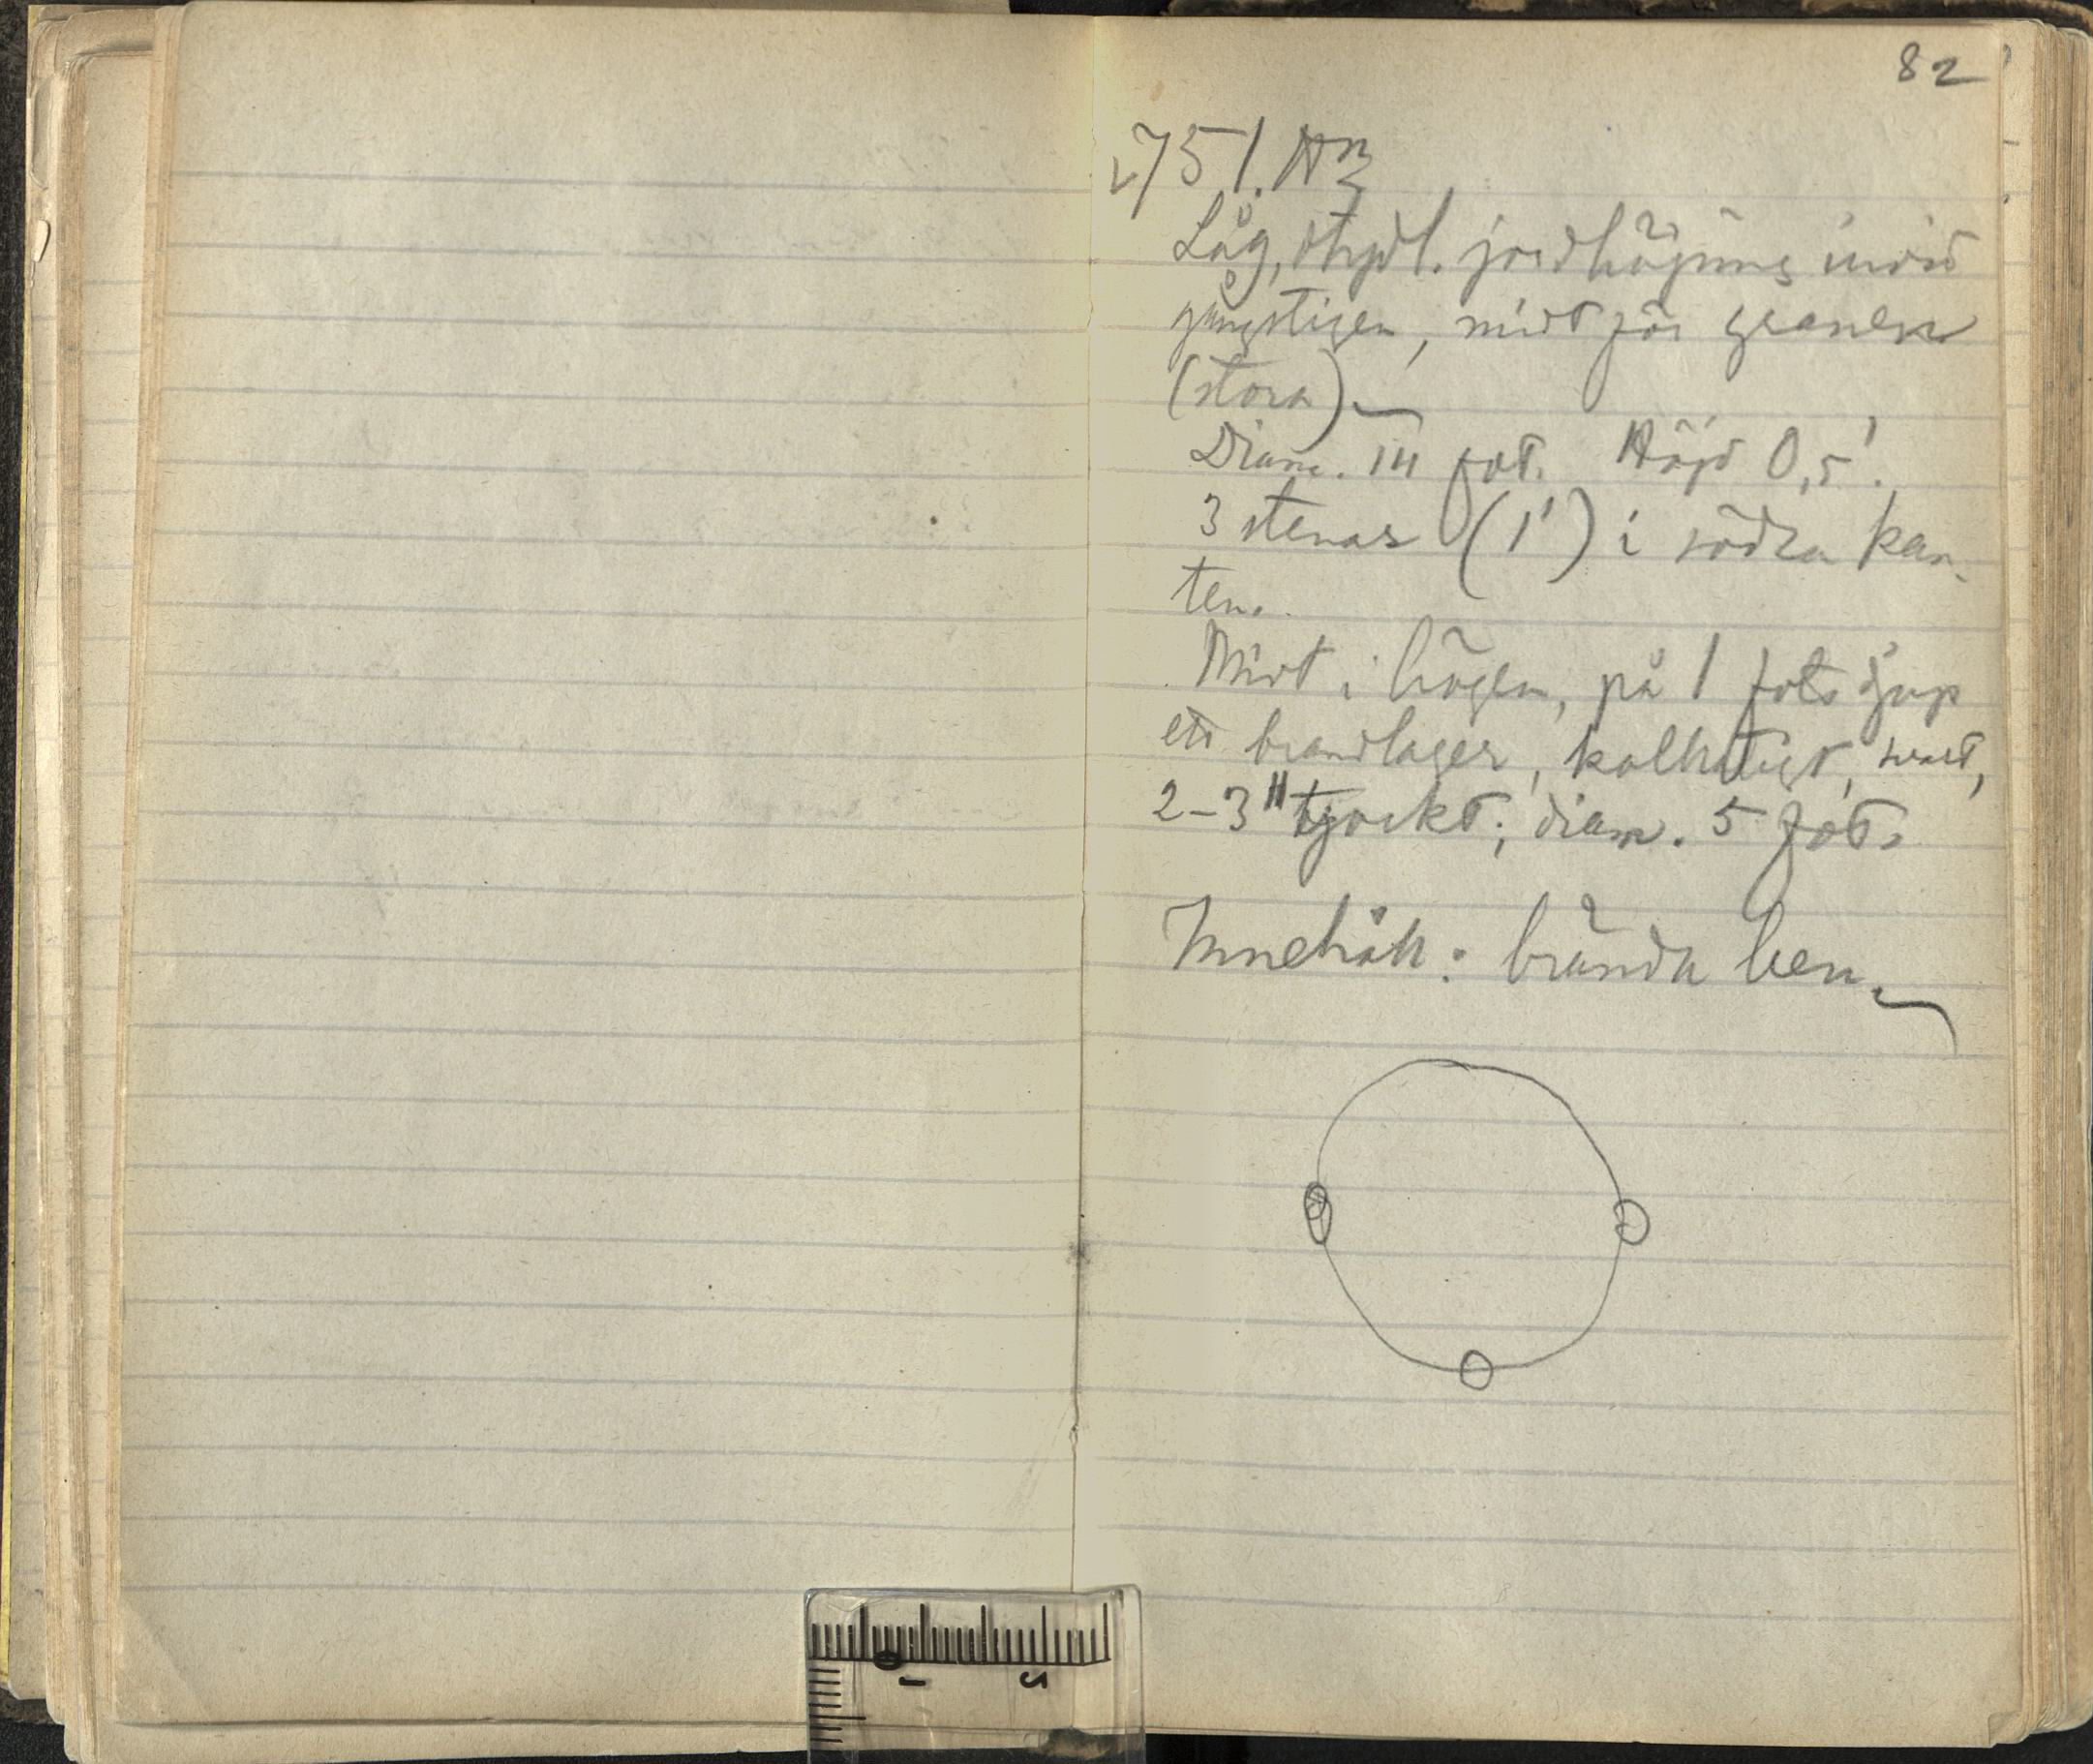 82
751. A3
Låg, otydl. jordhögning invid
gångstigen, midt för granen
(stora)
Diam. 14 fot. Höjd 0,5'.
3 stenar (1') i södra kan-
ten.
Midt i högen, på 1 fots djup
ett brandlager, kolhaltigt, svart,
2-3" tjockt; diam. 5 fot.
Innehåll: brända ben.